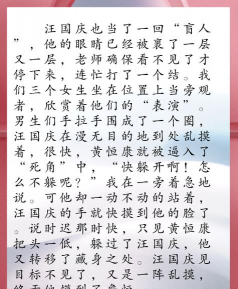 汪国庆也当了一回“盲人
”，他的眼睛已经被裹了一层
又一层，老师确保看不见了才
停下来，连忙打了一个结。我
们三个女生坐在位置上当旁观
者，欣赏着他们的“表演”。
男生们手拉手围成了一个圈，
汪国庆在漫无目的地到处乱摸
着，很快，黄恒康就被逼入了
“死角”中，“快躲开啊！怎
么不躲呢？”我在一旁着急地
说。可他却一动不动的站着，
汪国庆的手就快摸到他的脸了
。说时迟那时快，只见黄恒康
把头一低，躲过了汪国庆，他
又转移了藏身之处。汪国庆见
目标不见了，又是一阵乱摸，